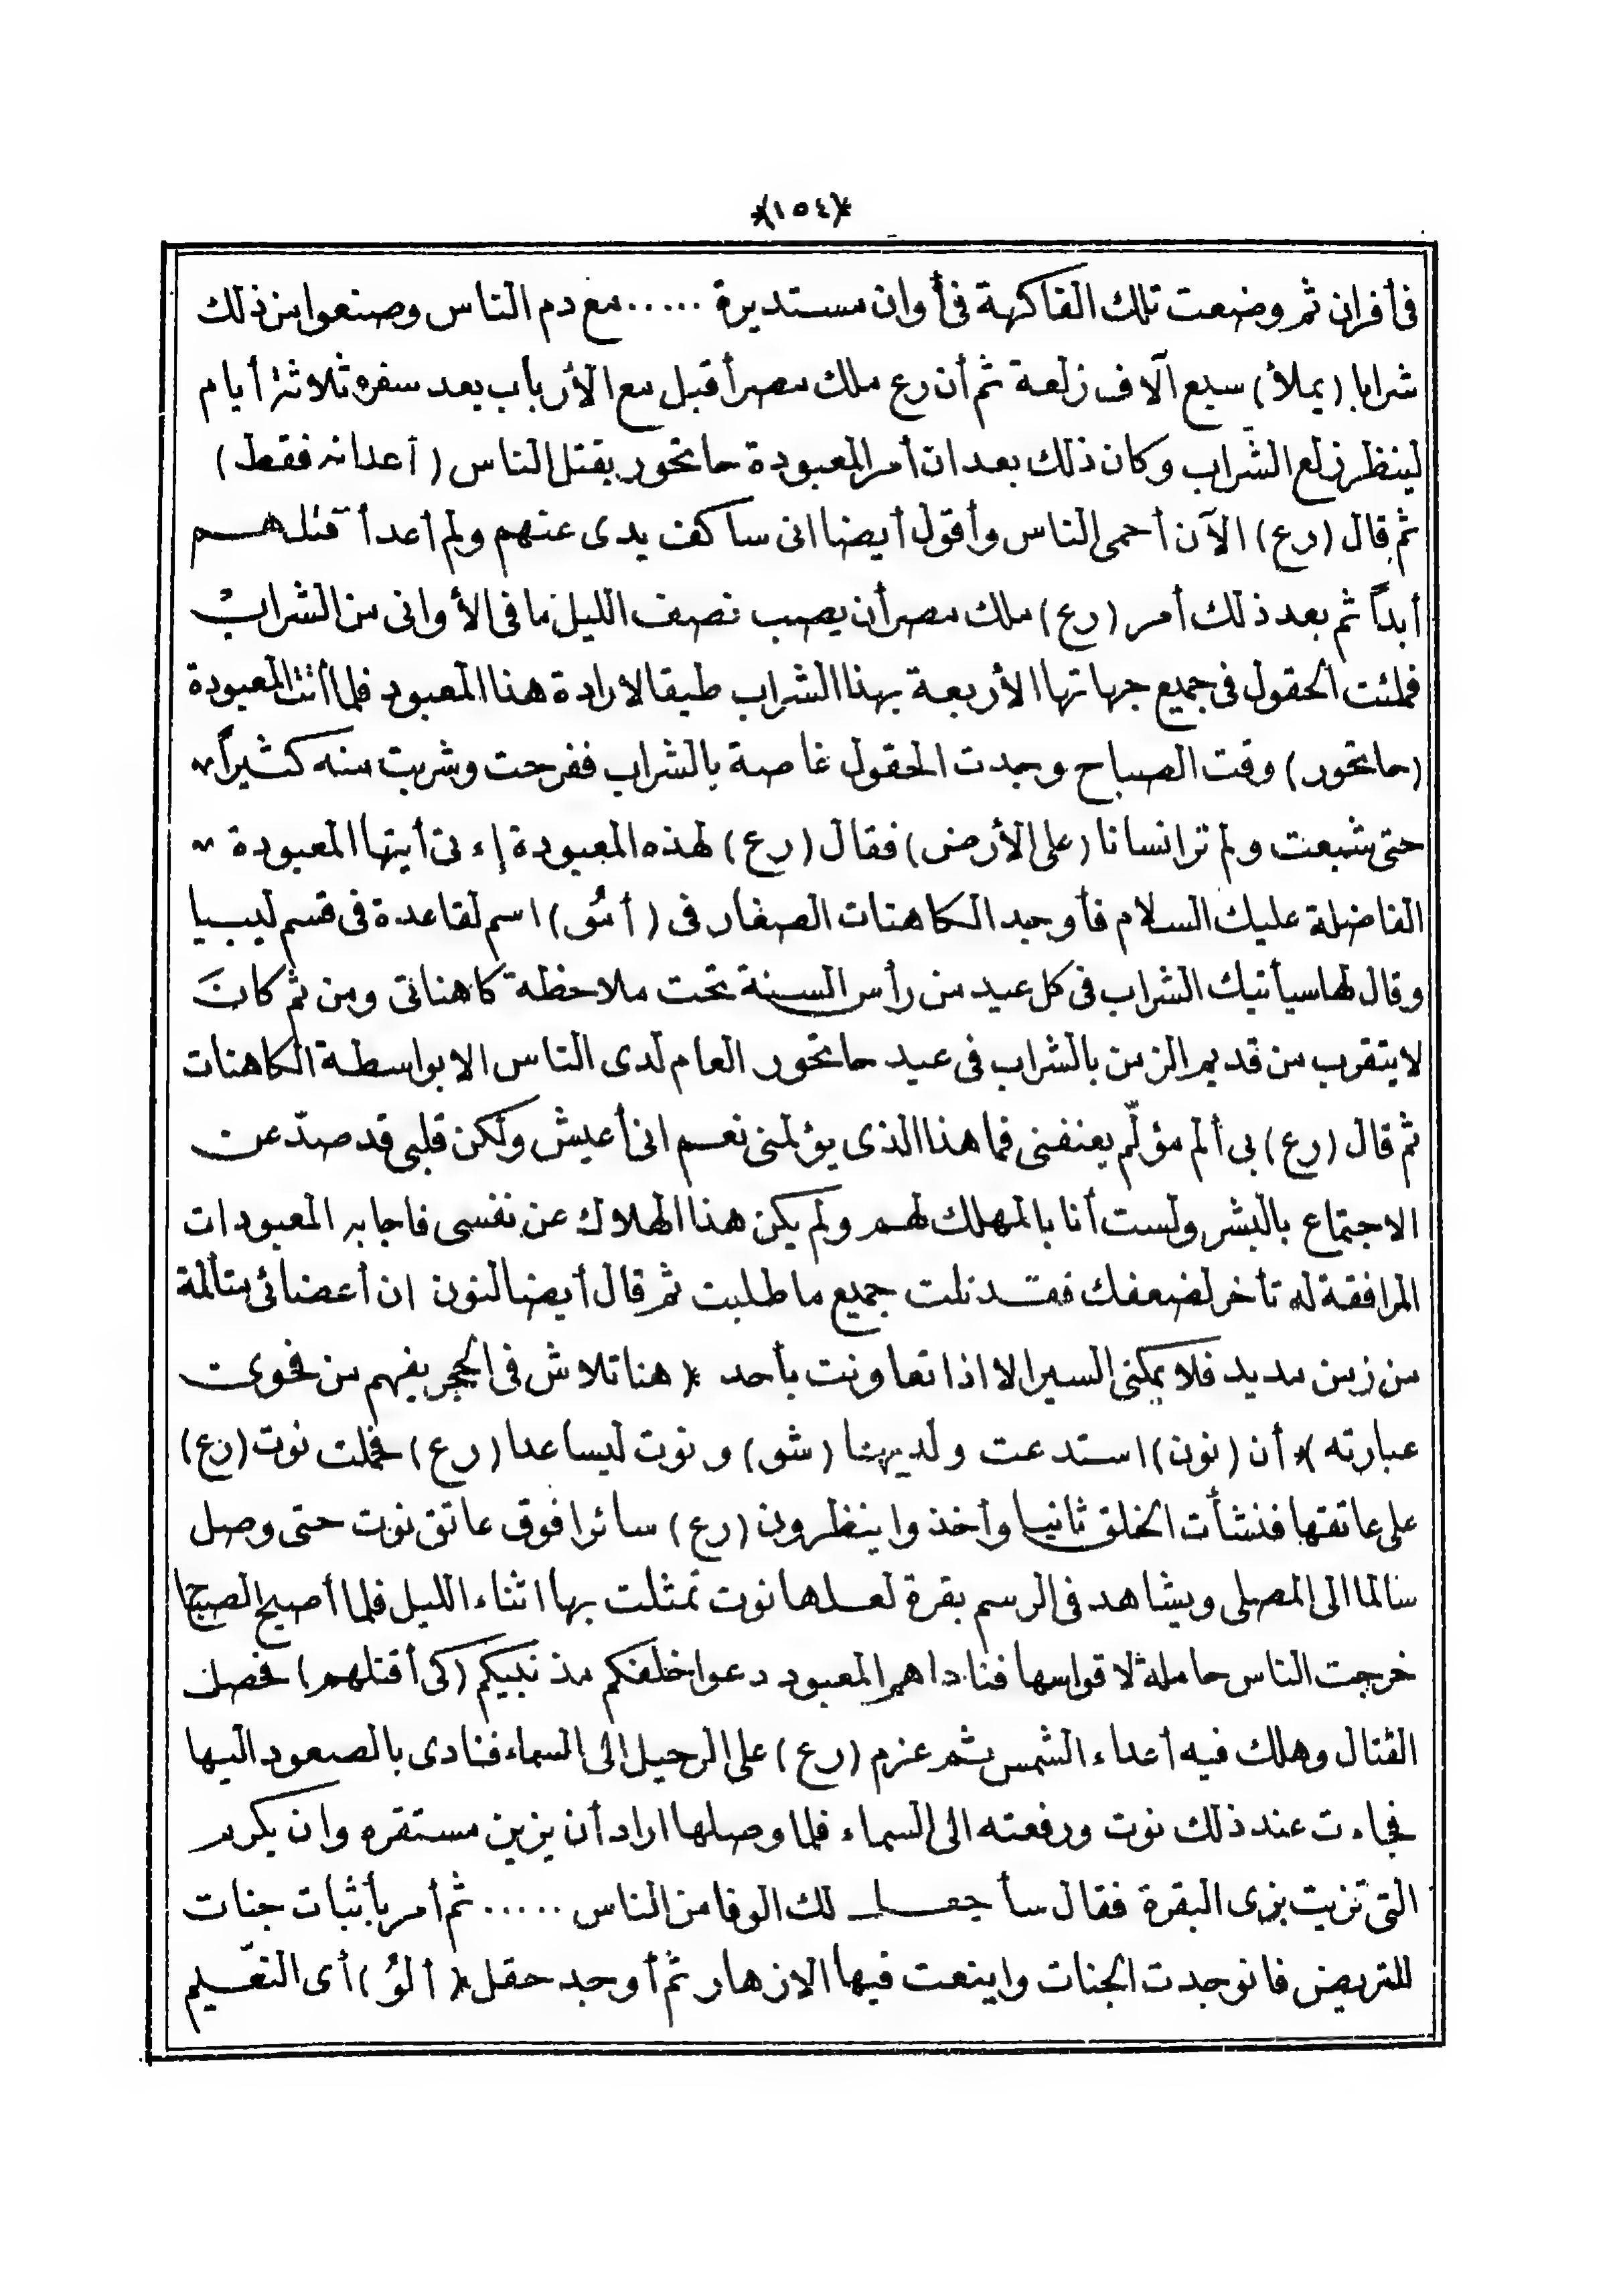 *(١٥٤)*
فى أفران ثم وضعت تلك الفاكهة فى أوان مستديرة ......مع دم الناس وصنعوا من ذلك
شرابا (يملأ) سبع آلاف زلعة ثم أن رع ملك مصر أقبل مع الأرباب بعد سفره ثلاثة أيام
لينظر زلع الشراب وكان ذلك بعد ان أمر المعبودة حاتحور بقتل الناس (أعدائه فقط)
ثم قال (رع) الآن أحمى الناس وأقول أيضا انى ساكف يدى عنهم ولم أعد أقتلهم
أبداً ثم بعد ذلك أمر (رع) ملك مصر أن يصب نصف الليل ما فى الأوانى من الشراب
فملئت الحقول فى جميع جهاتها الأربعة بهذا الشراب طبقا لارادة هذا المعبود فلما أتت المعبودة
(حاتحور) وقت الصباح وجدت الحقول غاصة بالشراب ففرحت وشربت منه كثيراً
حتى شبعت ولم تر انسانا (على الأرض) فقال (رع) لهذه المعبودة إءتى أيتها المعبودة
الفاضلة عليك السلام فأوجد الكاهنات الصغار فى (أمُو) اسم لقاعدة فى قسم ليبيا
وقال لها سيأتيك الشراب فى كل عيد من رأس السنة تحت ملاحظة كاهناتى ومن ثم كان
لا يتقرب من قديم الزمن بالشراب فى عيد حاتحور العام لدى الناس الا بواسطة الكاهنات
ثم قال (رع) بى ألم مؤلّم يعنفنى فما هذا الذى يؤلمنى نعم انى أعيش ولكن قلبى قد صدّ عن
الاجتماع بالبشر ولست أنا بالمهلك لهم ولم يكن هذا الهلاك عن نفسى فاجابه المعبودات
المرافقة له تأخر لضعفك فقد نلت جميع ما طلبت ثم قال أيضا لنون ان أعضائى متألمة
من زمن مديد فلا يمكنى السير الا اذا تعاونت بأحد *(هنا تلاش فى الحجر يفهم من فحوى
عبارته)* أن (نون) استدعت ولديها (شو) ونوت ليساعدا (رع) فحملت نوت (رع)
على عاتقها فنشأت الخلق ثانيا وأخذوا ينظرون (رع) سائرا فوق عاتق نوت حتى وصل
سالما الى المصلى ويشاهد فى الرسم بقرة لعلها نوت تمثلت بها اثناء الليل فلما أصبح الصباح
خرجت الناس حاملة لاقواسها فناداهم المعبود دعوا خلفكم مذنبيكم (كى أقتلهم) فحصل
القتال وهلك فيه أعداء الشمس ثم عزم (رع) على الرحيل الى السماء فنادى بالصعود اليها
فجاءت عند ذلك نوت ورفعته الى السماء فلما وصلها اراد أن يزين مستقره وان يكرم
التى تزيت بزى البقرة فقال سأجعل لك الوفا من الناس ......ثم أمر بأثبات جنات
للتريض فانوجدت الجنات واينعت فيها الازهار ثم أوجد حقل *(ألُو) أى النعيم